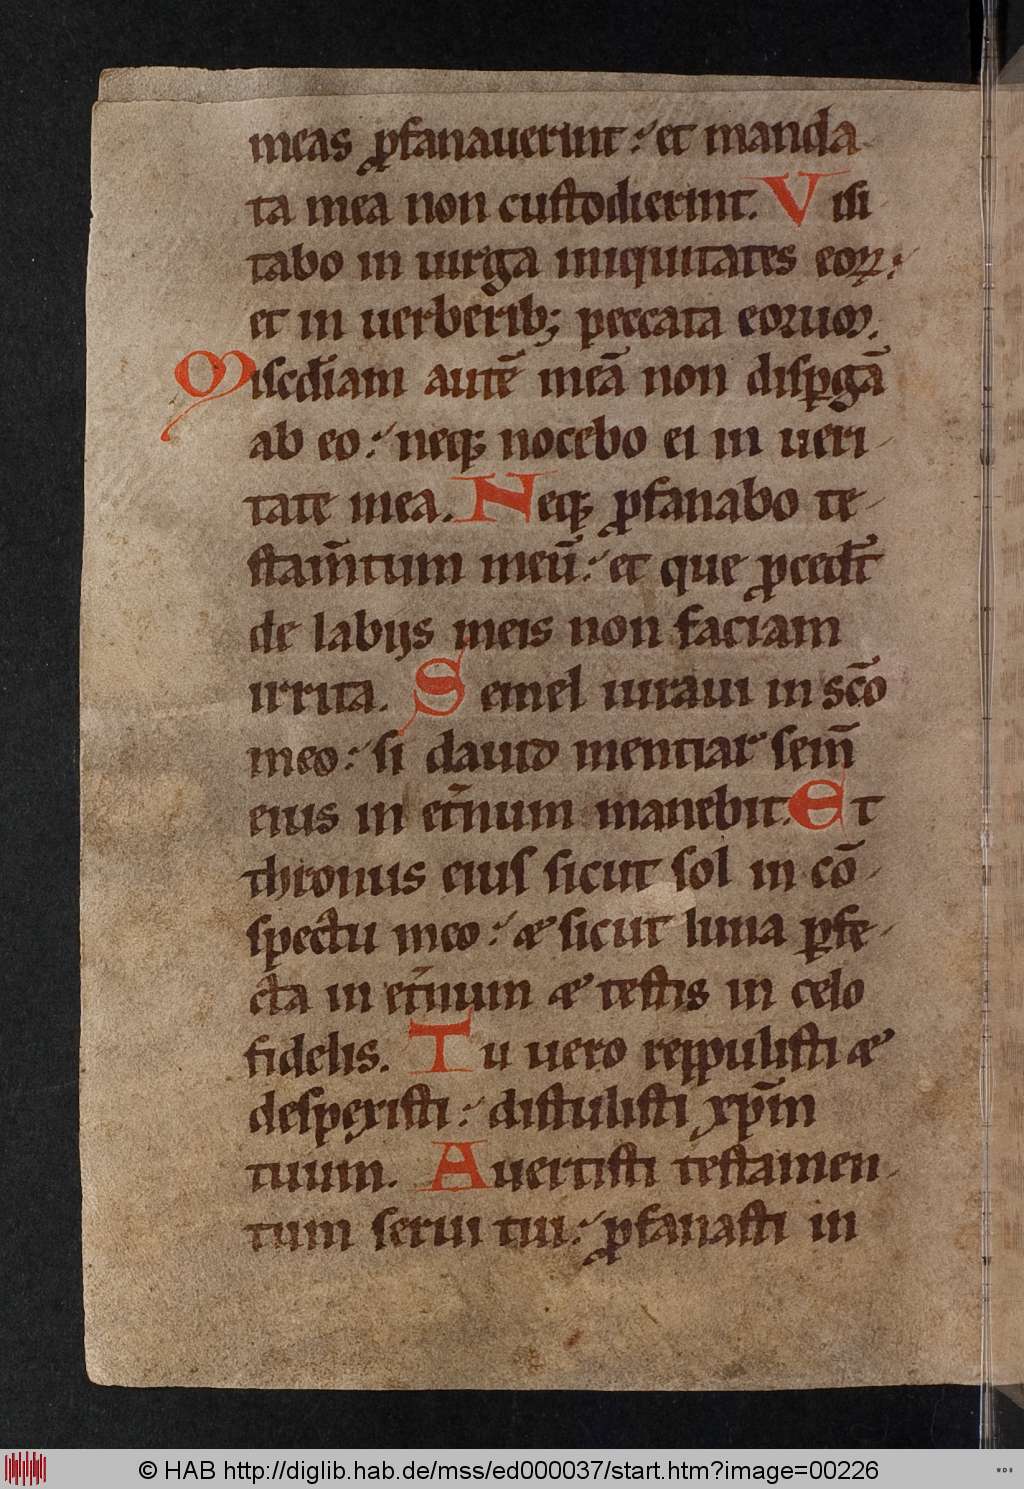 meas ꝓfanauerint: et manda
ta mea non custodierint. Visi
tabo in uirga iniquitates eoꝝ:
et in uerberib; peccata eorum.
Miscd̄iam autē meā non disꝑgā
ab eo: neq; nocebo ei in ueri
tate mea. Neq; ꝓfanabo te
stam̄tum meū: et que ꝓced̄t
de labijs meis non faciam
irrita. Semel iuraui in sc̄o
meo: si dauid mentiar sem̄
eius in et̄num manebit. Et
thronus eius sicut sol in cō
spectu meo: & sicut luna ꝑfe
cta in et̄num & testis in celo
fidelis. Tu uero reppulisti &
despexisti: distulisti xp̄m
tuum. Auertisti testamen
tum serui tui: ꝓfanasti in
© HAB http://diglib.hab.de/mss/ed000037/start.htm?image=00226